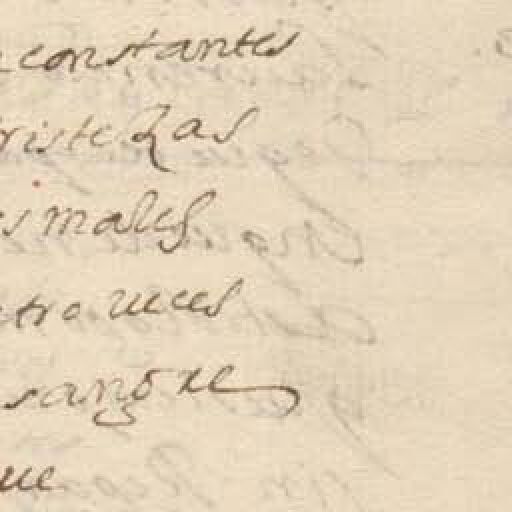 constantes
tristezas
es males
tro veces
sangre
ue